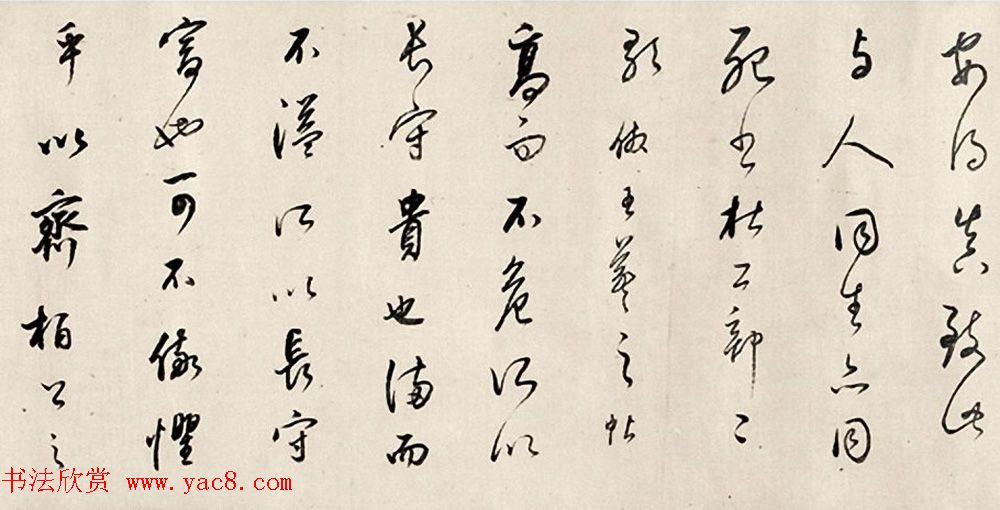 安得真致此
与人同生亦同
死书杜工部二
歌倣王羲之帖
高而不危所以
长守貴也满而
不溢所以長守
富也可不儆懼
乎以齊桓公之
书法欣赏 www.yac8.com